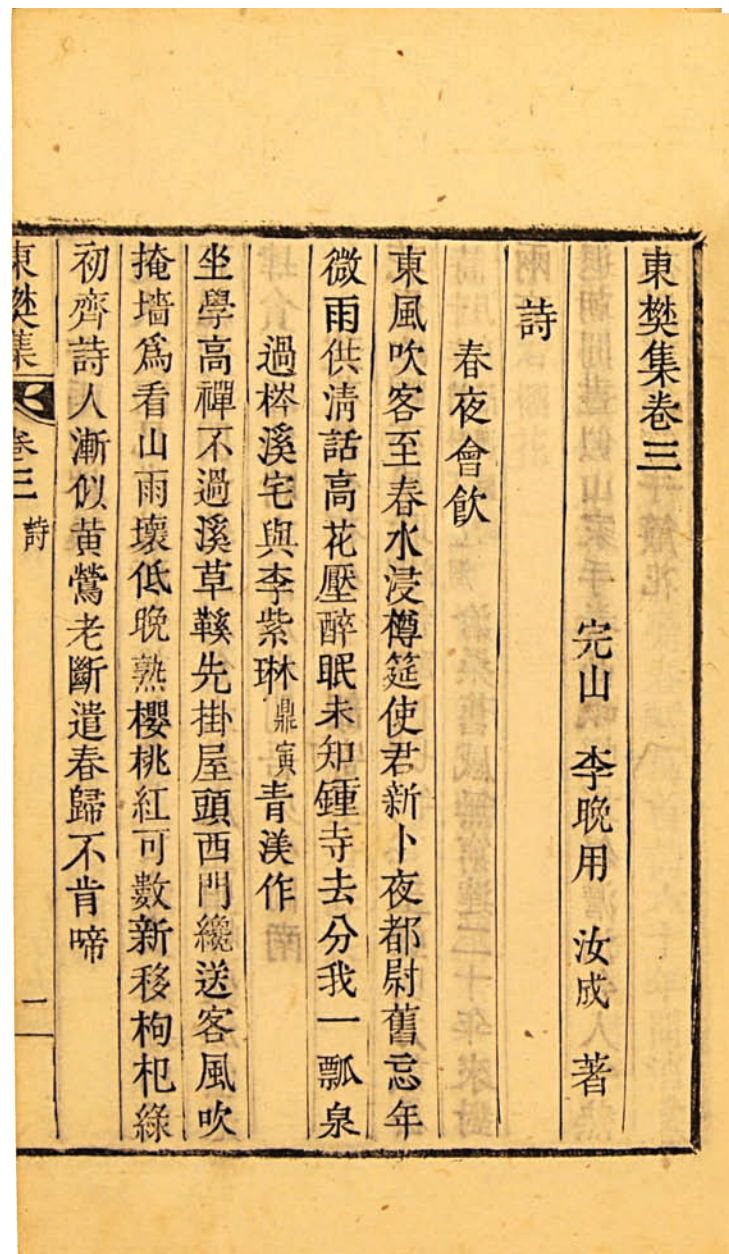 東樊集卷三
完山 李晩用 汝成 著
詩
春夜會飮
東風吹客至春水浸樽筵使君新卜夜都尉舊忘年
微雨供淸話高花壓醉眠未知鍾寺去分我一瓢泉
過桳溪宅與李紫琳鼎寅靑渼作
坐學高禪不過溪草鞵先掛屋頭西門纔送客風吹
掩墻爲看山雨壞低晩熟櫻桃紅可數新移枸杞綠
初齊詩人漸似黃鶯老斷遣春歸不肯啼
東樊集 卷三 詩 二